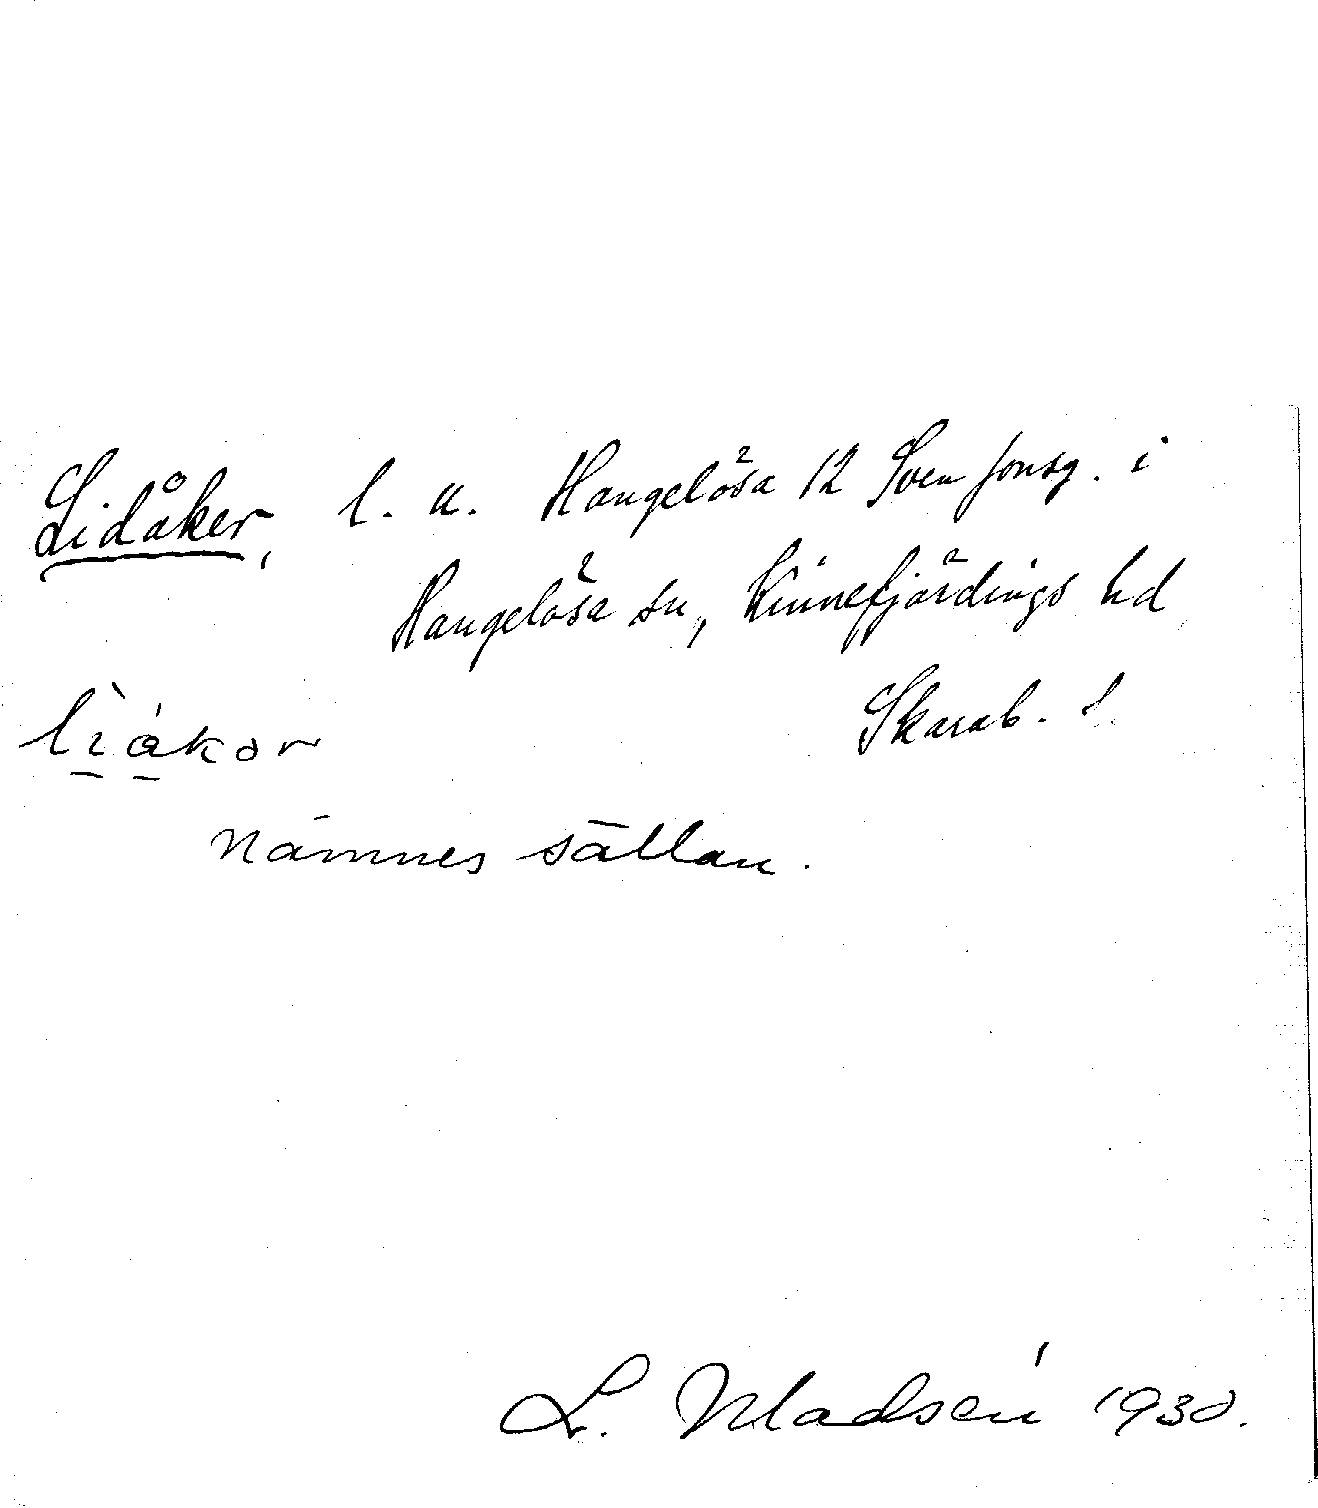 Lidåker, l. u. Hangelösa 12 Svenjonsg. i
Hangelösa sn, Kinnefjärdings hd
Skarab. l.
li̱å̱kər
nämnes sällan.
L. Madsén 1930.